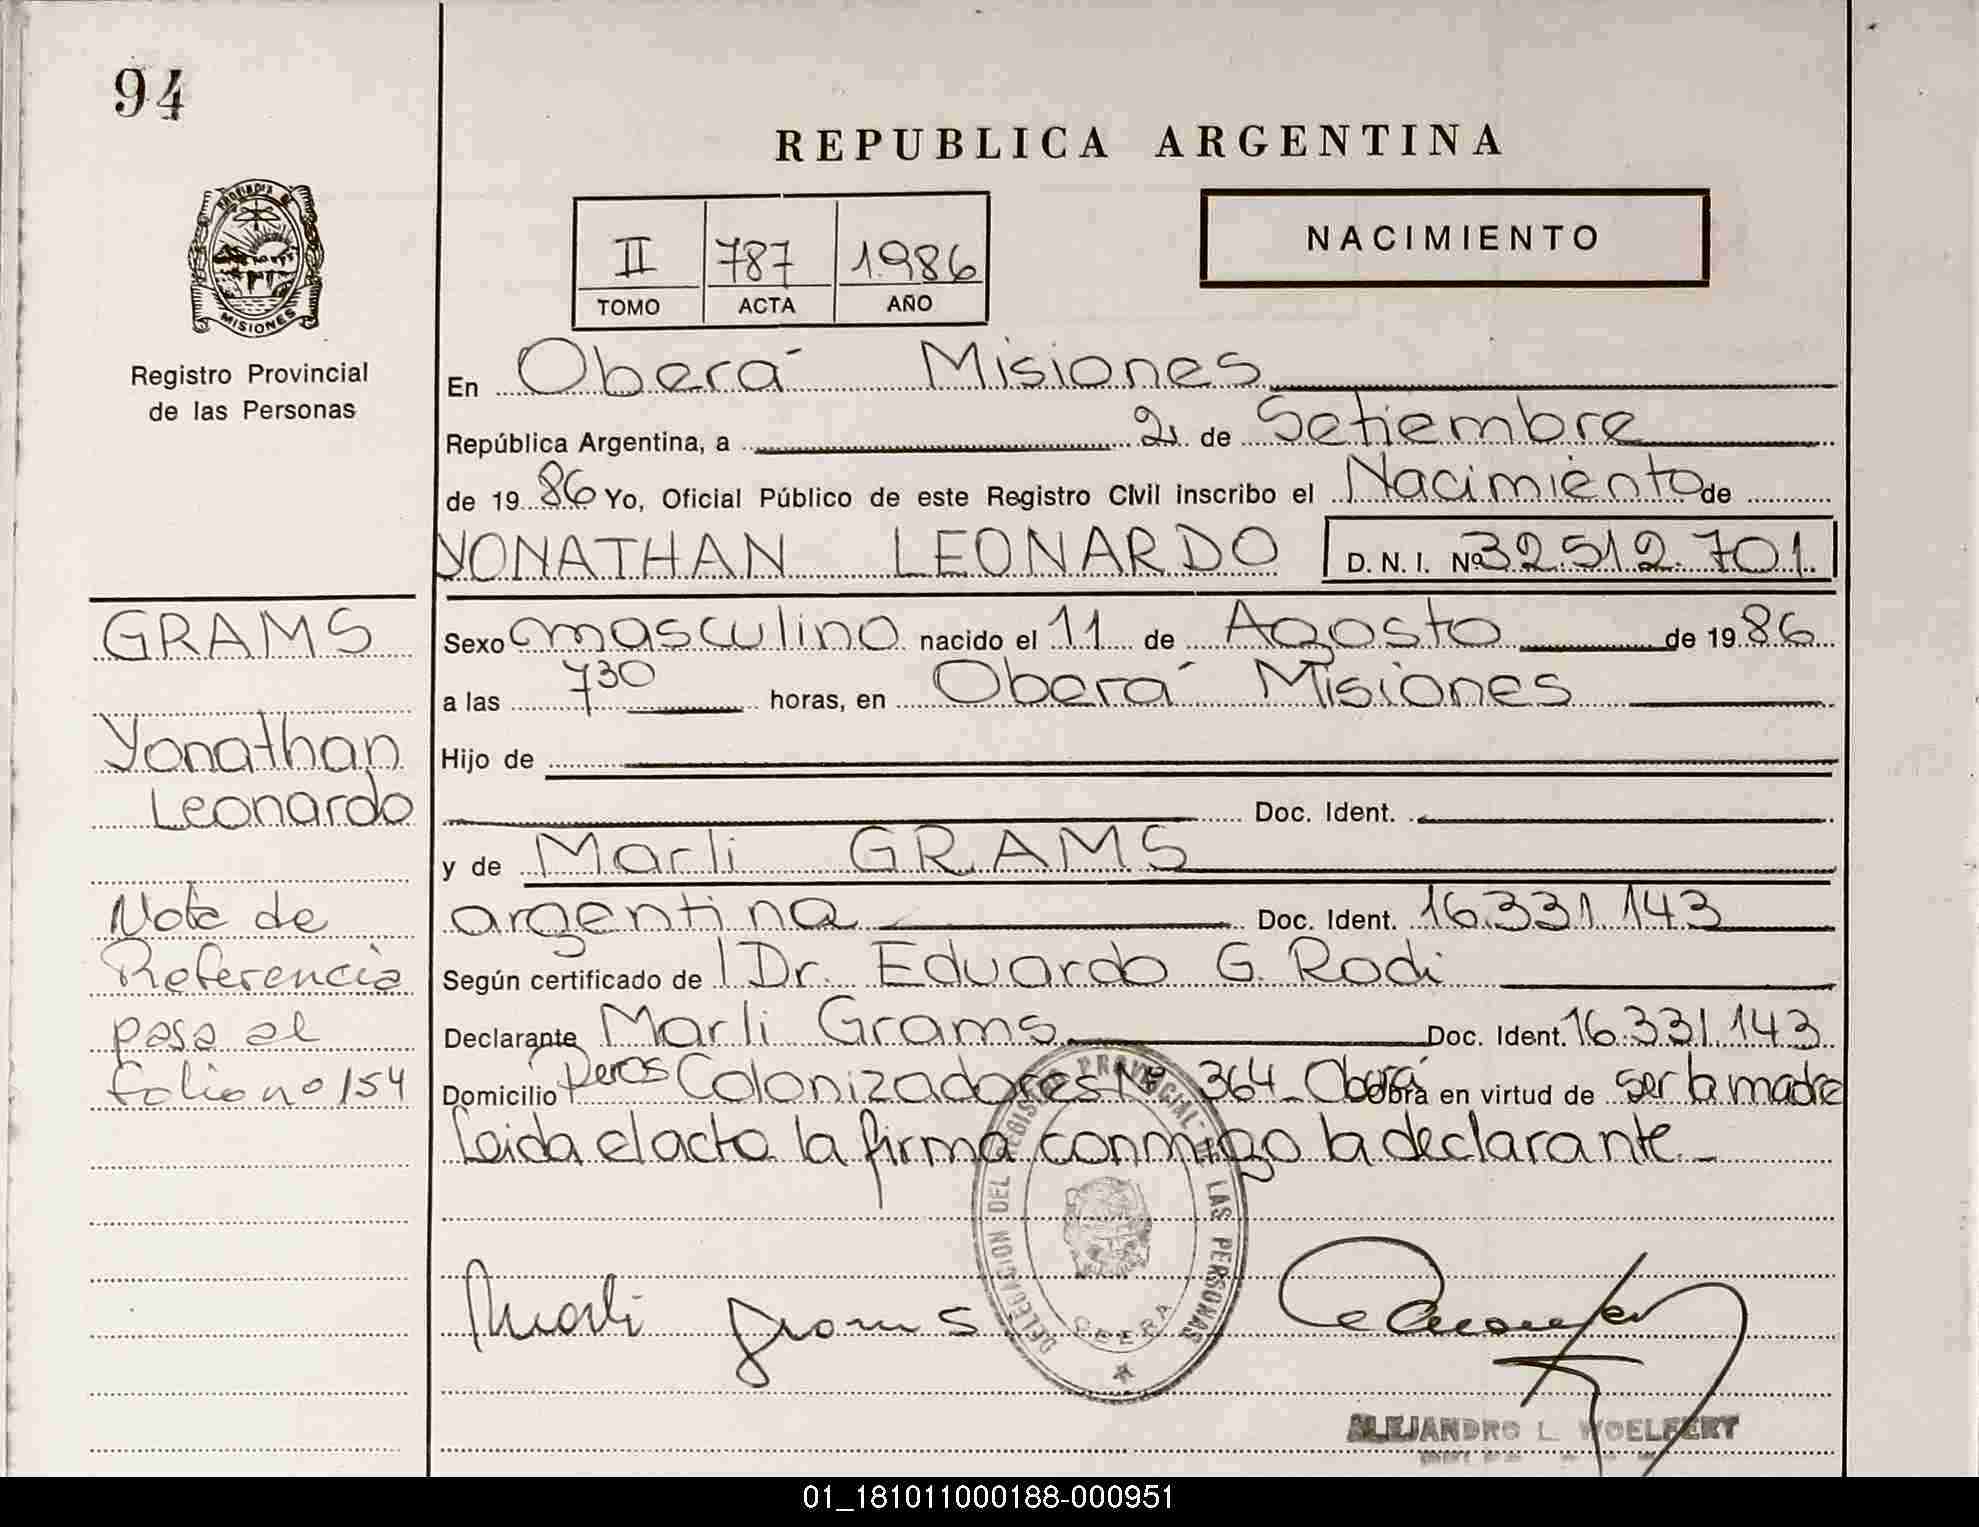 94
REPUBLICA ARGENTINA
PROVINCIA DE
MISIONES
Registro Provincial
de las Personas
II 787 1986
TOMO ACTA AÑO
NACIMIENTO
En Oberá Misiones
República Argentina, a 2 de Setiembre
de 1986 Yo, Oficial Público de este Registro Civil inscribo el Nacimiento de
YONATHAN LEONARDO D. N. I. Nº 32.512.701
GRAMS
Yonathan
Leonardo
Nota de
Referencia
pasa al
folio nº 154
Sexo masculino nacido el 11 de Agosto de 1986
a las 730 horas, en Oberá Misiones
Hijo de
Doc. Ident.
y de Marli GRAMS
argentina Doc. Ident. 16.331.143
Según certificado de Dr. Eduardo G. Rodi
Declarante Marli Grams Doc. Ident. 16.331.143
Domicilio Peros Colonizadores Nº 364 - Oberá obra en virtud de ser la madre
Leida el acta la firma conmigo la declarante. -
DELEGACION DEL REGISTRO PROVINCIAL DE LAS PERSONAS
OBERA
Marli Grams
ALEJANDRO L. WOELFERT
01_181011000188-000951